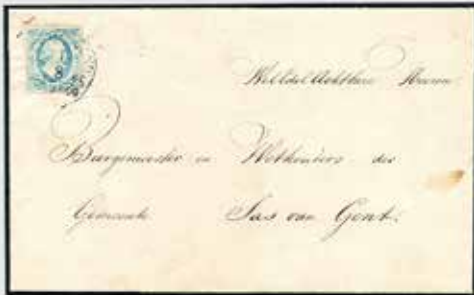 WelEdel Achtbare Heeren
Burgemeester en Wethouders der
Gemeente Sas van Gent.